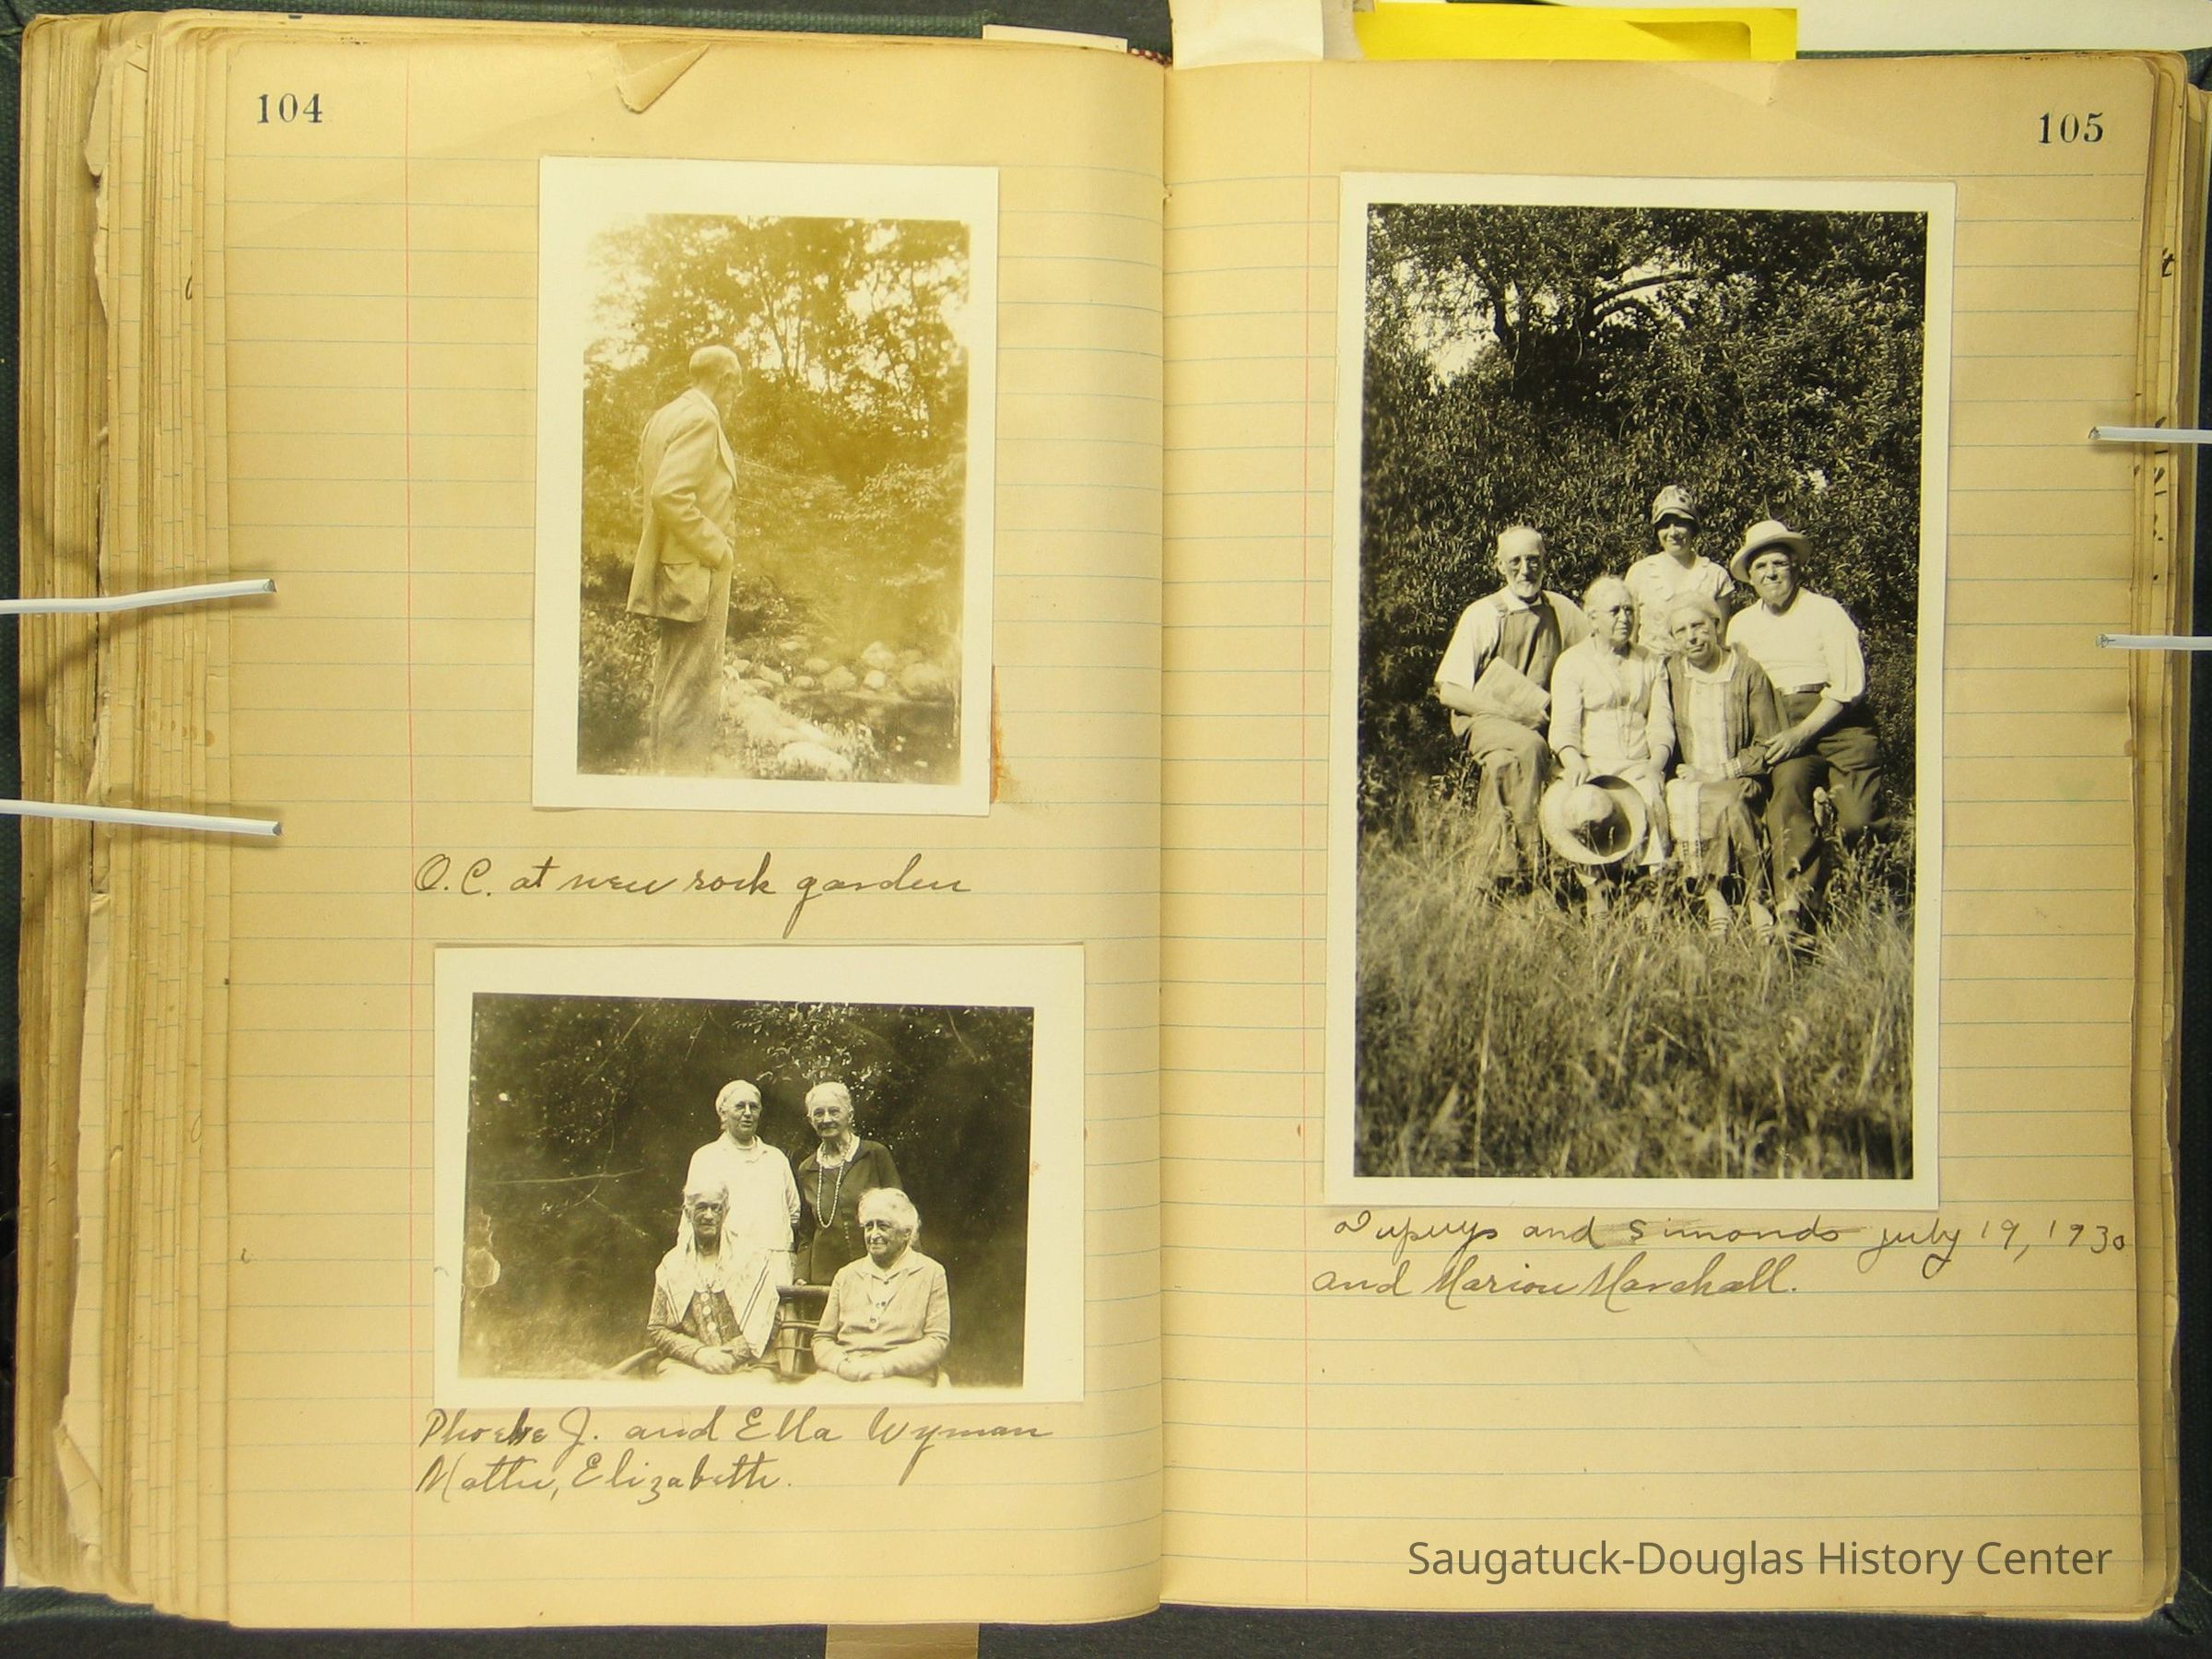 104
O.C. at new rock garden
Phoebe J. and Ella Wyman
Mattie, Elizabeth.
105
Dupuys and Simonds July 19, 1930
and Marion Marshall.
Saugatuck-Douglas History Center